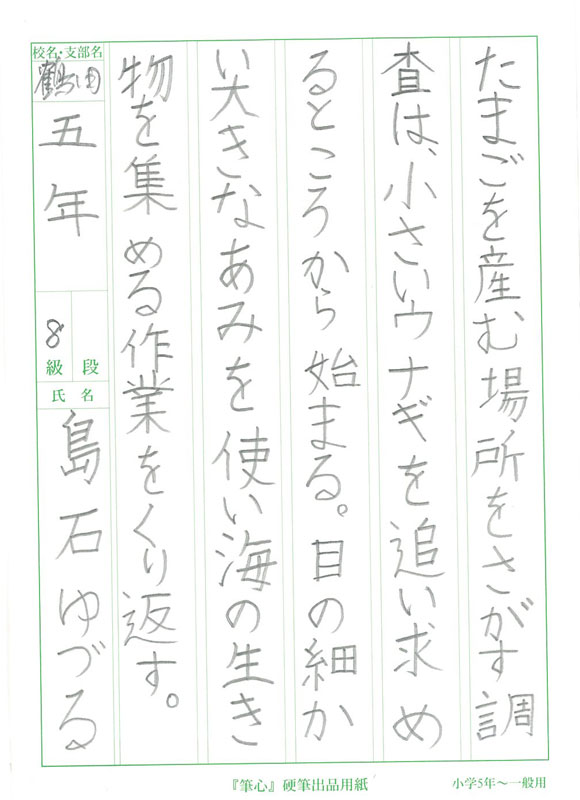 たまごを産む場所をさがす調
査は、小さいウナギを追い求め
るところから始まる。目の細か
い大きなあみを使い海の生き
物を集める作業をくり返す。
校名・支部名
鶴田
五年
段
8級
氏名
島石ゆづる
『筆心』硬筆出品用紙
小学5年〜一般用